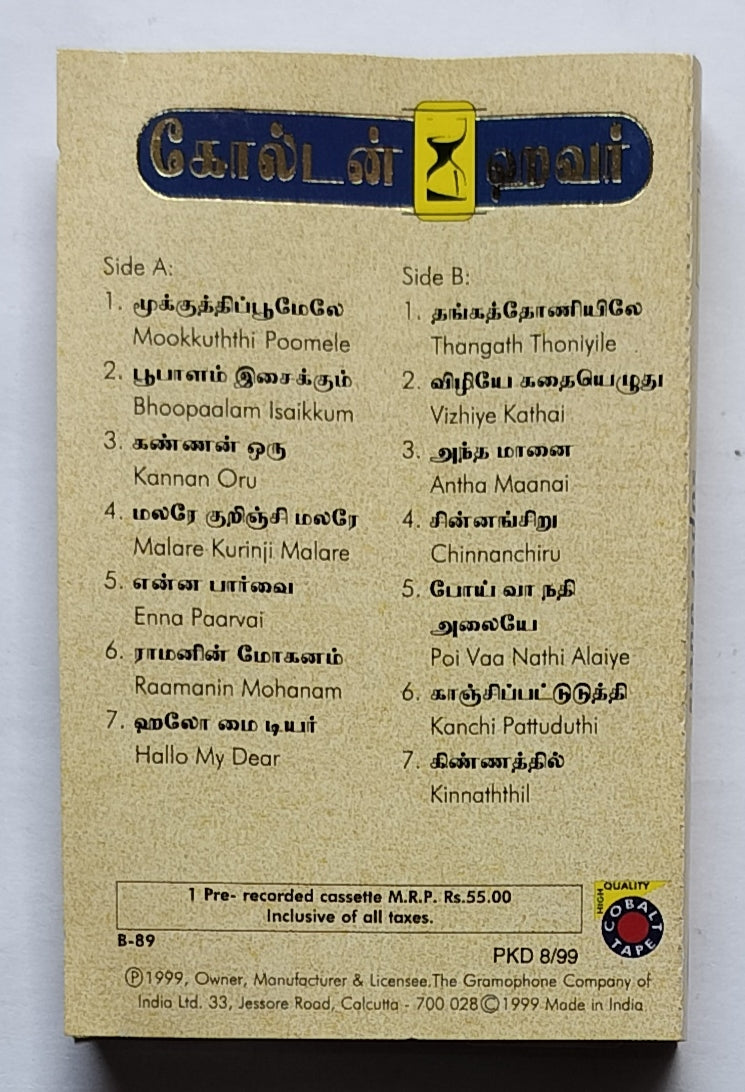 கோல்டன் ஹவர்
Side A:
1. மூக்குத்திப்பூமேலே
Mookkuththi Poomele
2. பூபாளம் இசைக்கும்
Bhoopaalam Isaikkum
3. கண்ணன் ஒரு
Kannan Oru
4. மலரே குறிஞ்சி மலரே
Malare Kurinji Malare
5. என்ன பார்வை
Enna Paarvai
6. ராமனின் மோகனம்
Raamanin Mohanam
7. ஹலோ மை டியர்
Hallo My Dear
Side B:
1. தங்கத்தோணியிலே
Thangath Thoniyile
2. விழியே கதையெழுது
Vizhiye Kathai
3. அந்த மானை
Antha Maanai
4. சின்னங்சிறு
Chinnanchiru
5. போய் வா நதி
அலையே
Poi Vaa Nathi Alaiye
6. காஞ்சிப்பட்டுடுத்தி
Kanchi Pattuduthi
7. கிண்ணத்தில்
Kinnaththil
1 Pre- recorded cassette M.R.P. Rs.55.00
Inclusive of all taxes.
HIGH QUALITY
COBALT
TAPE
B-89
PKD 8/99
Ⓟ1999, Owner, Manufacturer & Licensee.The Gramophone Company of
India Ltd. 33, Jessore Road, Calcutta - 700 028 © 1999 Made in India